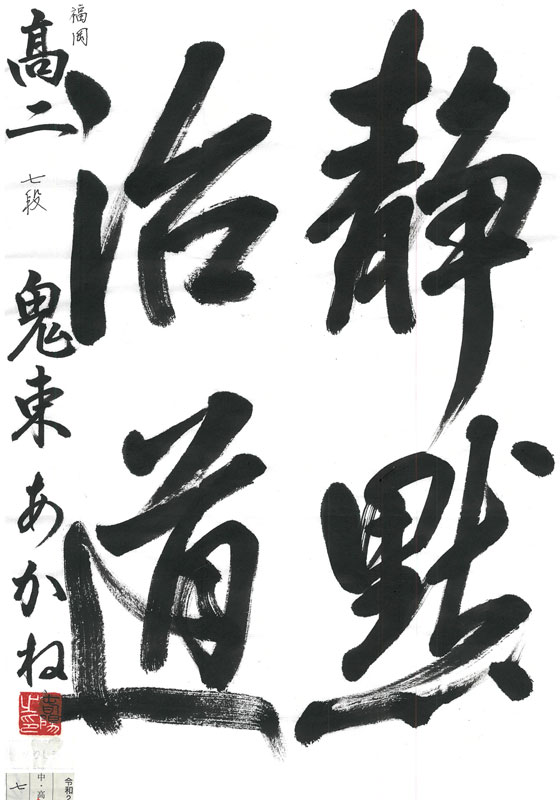 静默
治道
福岡
高二 七段 鬼東あかね
中・高
七
令和2